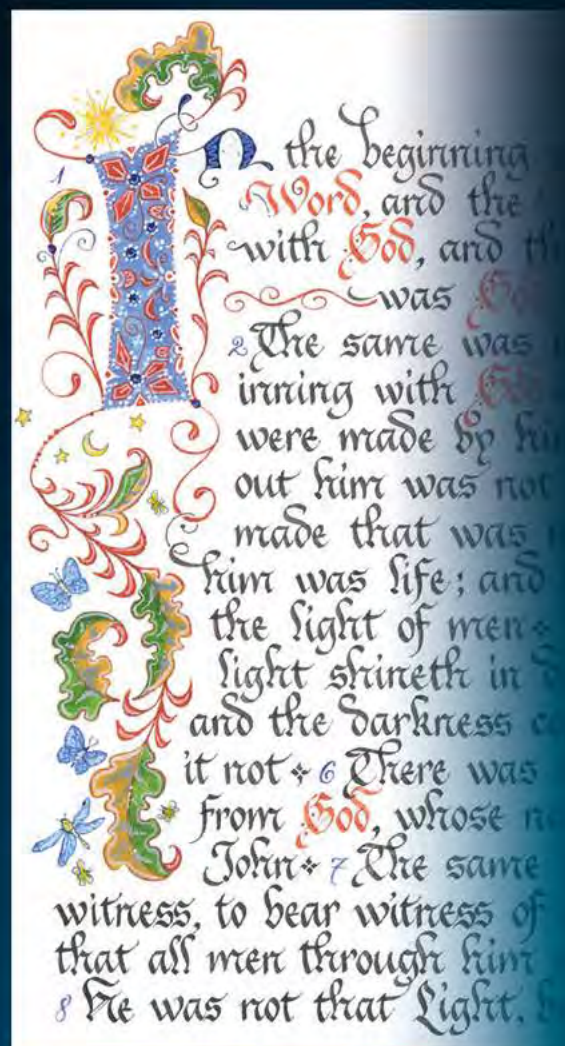 1 In the beginning
Word, and the
with God, and th
was God
2 The same was
inning with God
were made by hi
out him was not
made that was
him was life; and
the light of men
light shineth in d
and the darkness co
it not 6 There was
from God, whose n
John 7 The same
witness, to bear witness of
that all men through him
8 He was not that Light, b